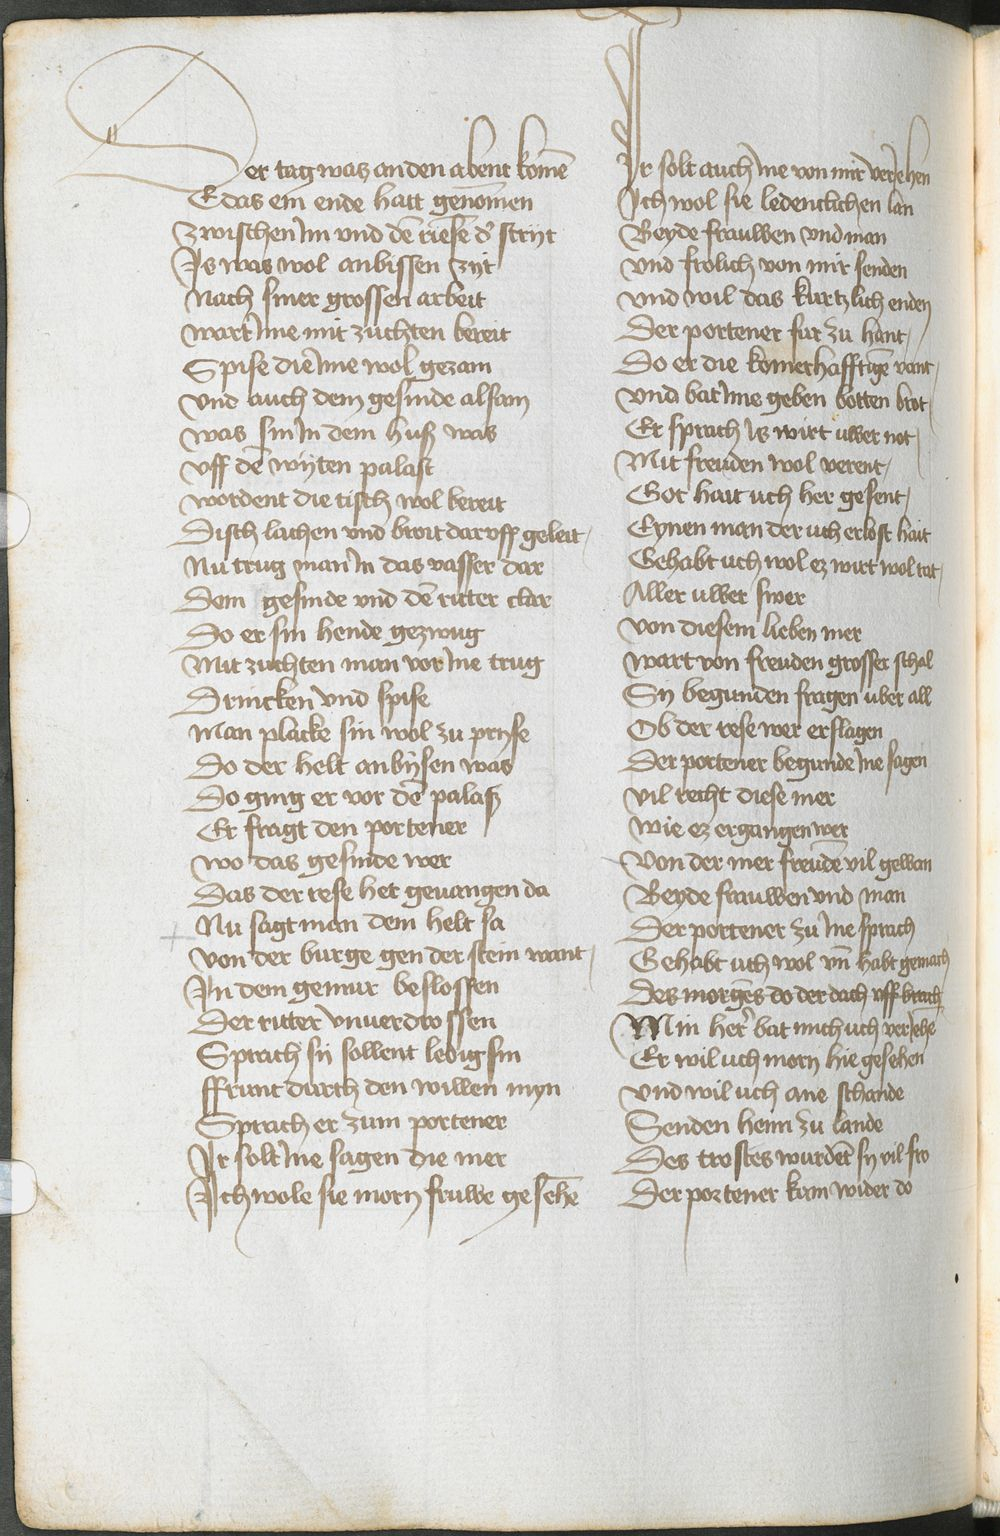 Der tag was an den abent komē
E das ein ende hatt genomen
Zwischen im vnd dē riesē d' stryt
Is was wol anbissen zijt
Nach siner grossen arbeit
Wart ime mit zuchten bereit
Spise die ime wol gezam
Vnd auch dem gesinde alsam
Was sin in dem huß was
Vff dē wijten palast
Wordent die tisch wol bereit
Disch lachen vnd broit dar vff geleit
Nu trug man in das vasser dar
Dem gesinde vnd dē ritter clar
Do er sin hende gezwug
Mit zuchten man vor ine trug
Drincken vnd spise
Man placke sin wol zu pryse
Do der helt anbijsen was
Do ging er vor dē palaß
Er fragt den portener
Wo das gesinde wer
Das der rese het geuangen da
Nu sagt man dem helt sa
Von der burge gen der stein want
In dem gemur beslossen
Der ritter vnuerdrossen
Sprach sij sollent ledig sin
Ffrunt durch den willen myn
Sprach er zum portener
Ir solt ine sagen die mer
Ich wole sie morn fruwe gesehē
Ir solt auch ine von mir veriehen
Ich wol sie ledenclichen lan
Beyde frauwen vnd man
Vnd frolich von mir senden
Vnd wil das kurtzlich enden
Der portener fur zu hant
Do er die komerhafftigē vant
Vnd bat ime geben botten brot
Er sprach is wirt uwer not
Mit freuden wol verent
Got hait uch her gesent
Eynen man der uch erlost hait
Gehabt uch wol ez wirt wol rat
Aller uwer swer
Von diesem lieben mer
Wart von freuden grosser schal
Sij begunden fragen uber all
Ob der rese wer erslagen
Der portener begunde ine sagen
Vil recht diese mer
Wie ez ergangen wer
Von der mer freudē vil gewan
Beyde frauwen vnd man
Der portener zu ine sprach
Gehabt uch wol vn̄ habt gemach
Des morgēs do der dach vff brach
Min her' bat mich uch veriehē
Er wil uch morn hie gesehen
Vnd wil uch ane schande
Senden heim zu lande
Des trostes wurdēt sij vil fro
Der portener kam wider do